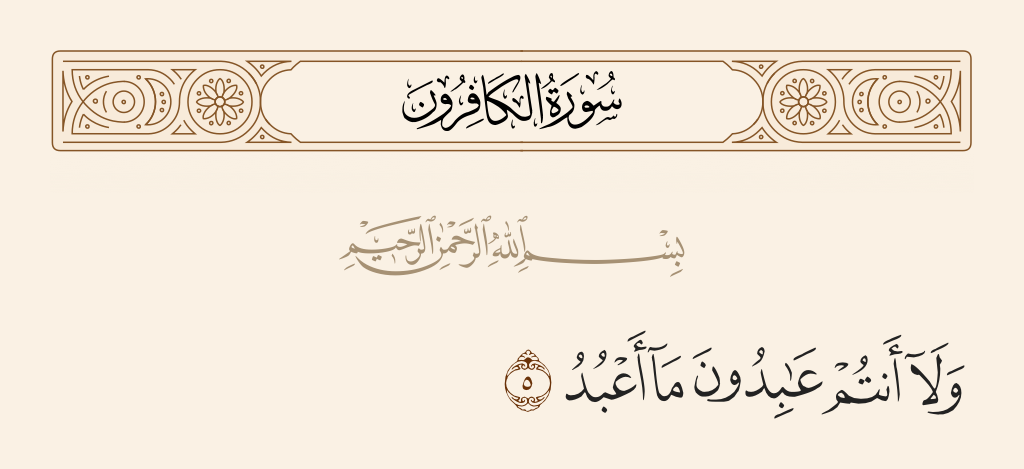 سُورَةُ الكَافِرُونَ
بِسْمِ ٱللَّهِ ٱلرَّحْمَٰنِ ٱلرَّحِيمِ
وَلَآ أَنتُمْ عَـٰبِدُونَ مَآ أَعْبُدُ ٥